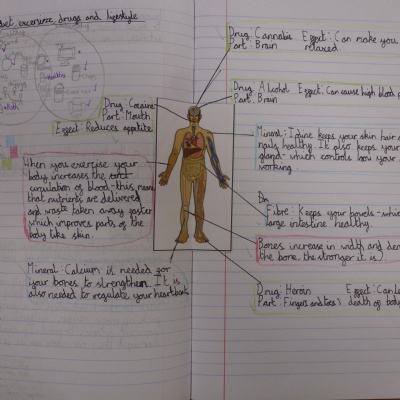 diet exercise, drugs and lifestyle
Health
Drug: Cocaine
Part: Mouth
Effect: Reduces appetite
When you exercise your
body increases the
circulation of blood - this means
that nutrients are delivered
and waste taken away faster
which improves parts of the
body like skin.
Mineral: Calcium is needed for
your bones to strengthen. It is
also needed to regulate your heartbeat
Drug: Cannabis Effect: Can make you
Part: Brain relaxed.
Drug: Alcohol Effect: Can cause high blood
Part: Brain
Mineral: Iodine keeps your skin hair
nails healthy. It also keeps your
gland - which controls how your
working.
Fibre: Keeps your bowels - which
large intestine healthy.
Bones increase in width and
the bone the stronger it is)
Drug: Heroin Effect: Can
Part: Fingers and toes death of body